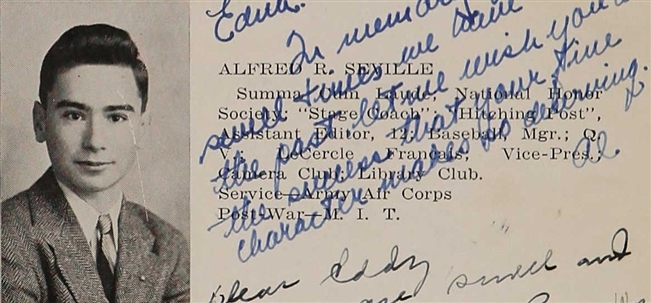 Edna.
In memory
ALFRED R. SEVILLE
swell times we have
Summa Cum Laude; National Honor
the past let me wish you
Society; "Stage Coach"; "Hitching Post",
the success that your fine
Assistant Editor, 12; Baseball, Mgr.; Q.
character makes so deserving.
V.; LeCercle Francais; Vice-Pres.;
Al
Camera Club; Library Club.
Service—Army Air Corps
Post War—M. I. T.
Dear Eddy
swell and